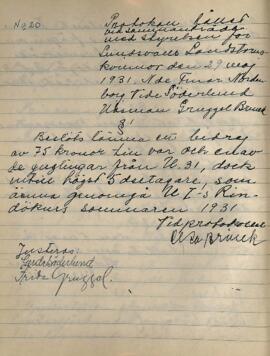 No 20
Protokoll fört
vid sammanträde
med styrelsen för
Sundsvalls Landstorms-
kvinnor den 29 maj
1931. N.de Fruar Norden
borg Vide Söderlund
Wesman Gruggel Brück
§1
Beslöts lämna ett bidrag
av 75 kronor till var och en av
de ynglingar från U.31, dock
intill högst 5 deltagare, som
ämna genomgå U I-S Rin-
dökurs sommaren 1931
Vid protokollet
Elsa Brück
Justeras:
Gerda Söderlund
Frida Gruggel.